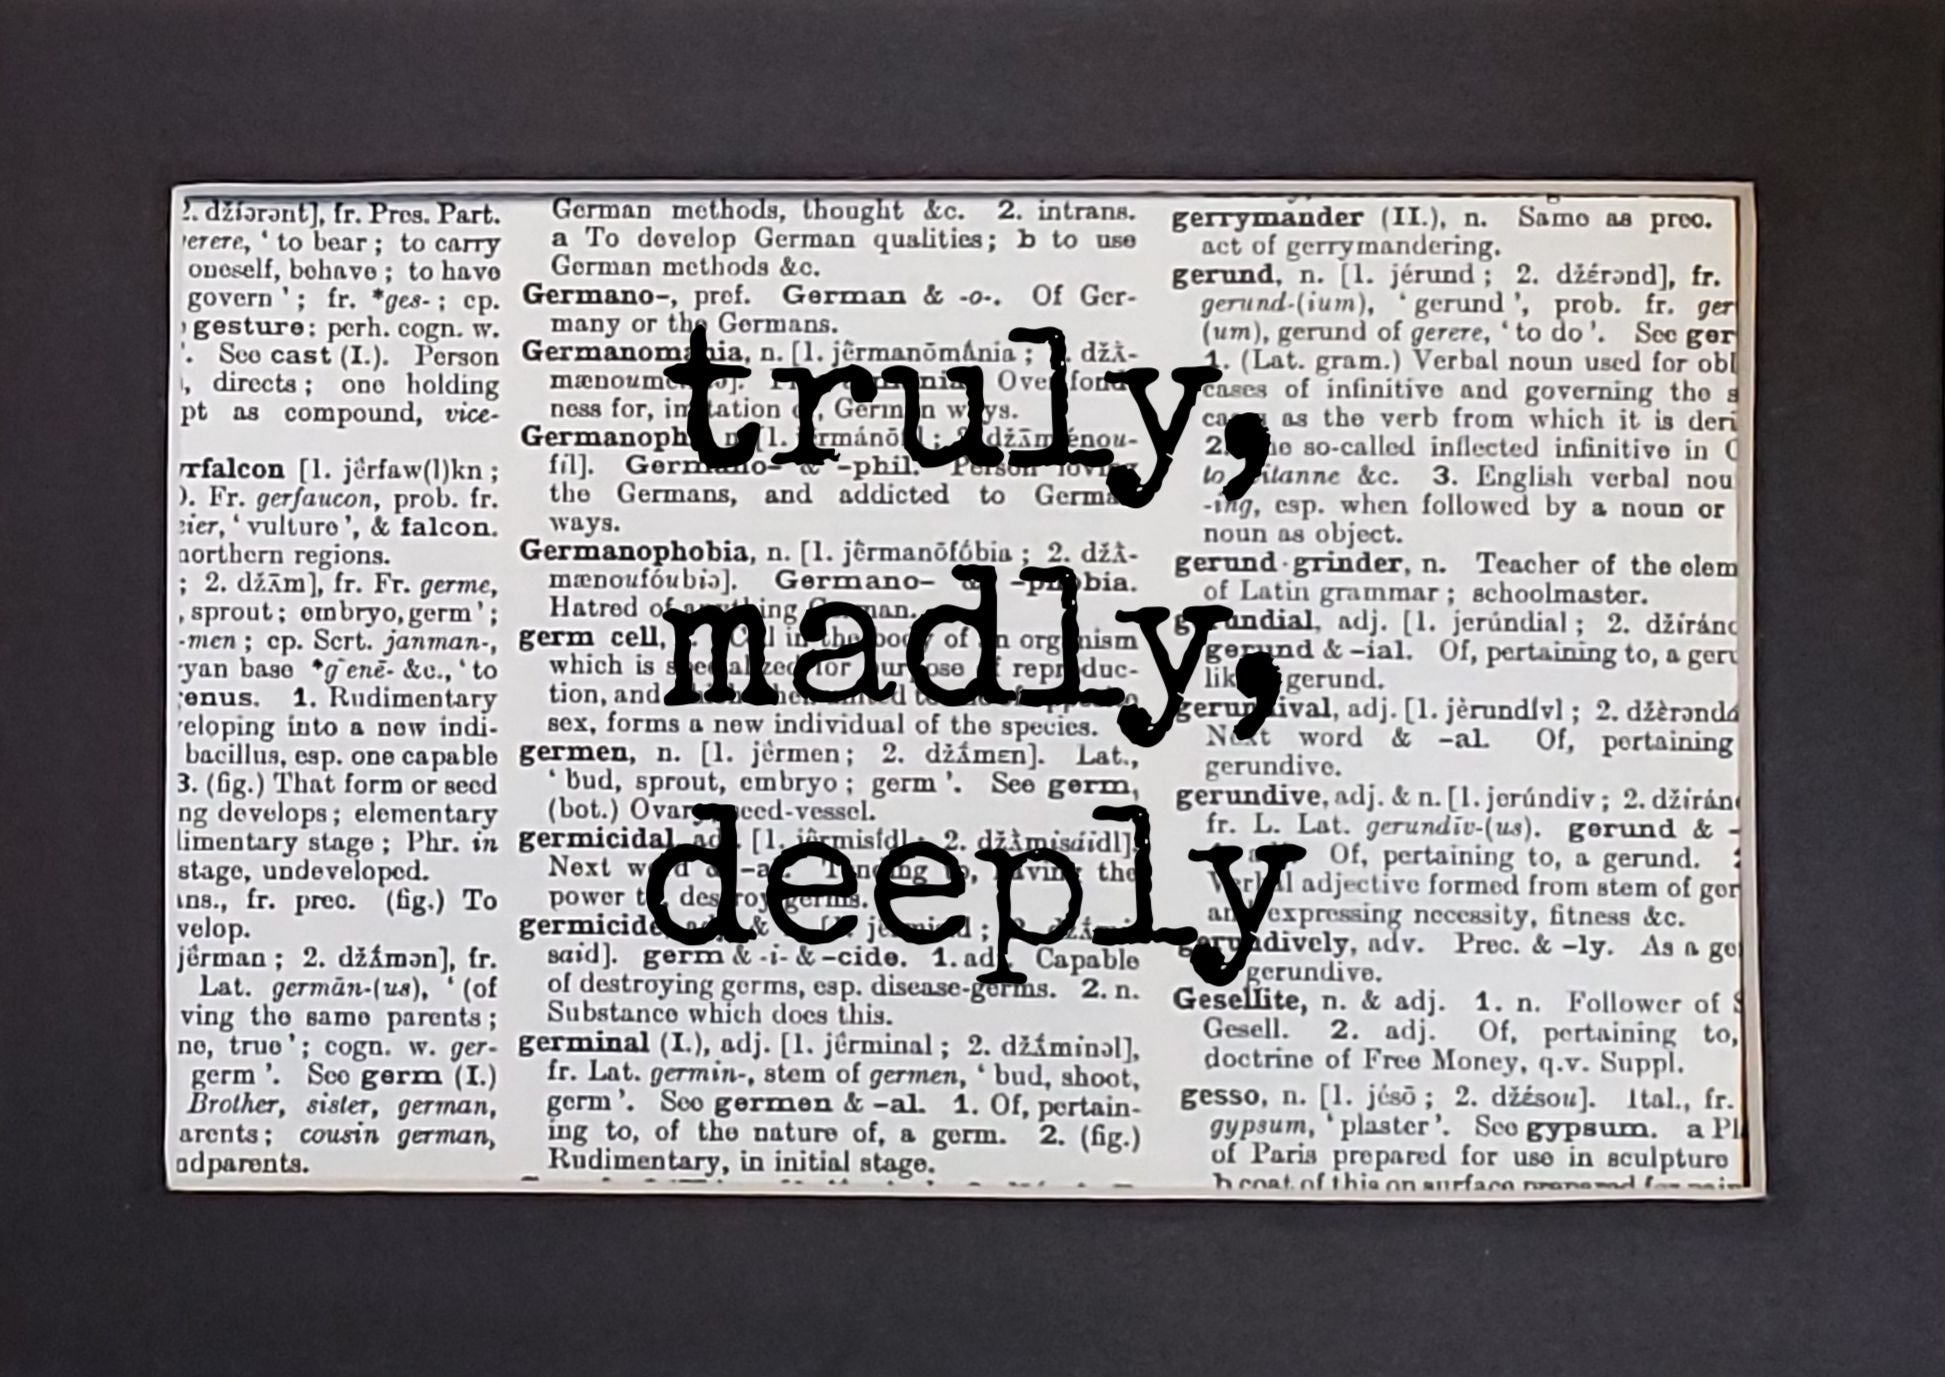 truly,
madly,
deeply
fr. Pres. Part.
‘ to bear ; to carry
oneself, behave ; to have
govern ’ ; fr. *ges- ; cp.
gesture; perh. cogn. w.
See cast (I.). Person
directs ; one holding
as compound, vice-
[1. jêrfaw(l)kn ;
Fr. gerfaucon, prob. fr.
‘ vulture ’, & falcon.
northern regions.
; 2. džʌ̄m], fr. Fr. germe,
, sprout ; embryo, germ ’ ;
-men ; cp. Scrt. janman-,
base *g̑enē- &c., ‘ to
1. Rudimentary
into a new indi-
bacillus, esp. one capable
3. (fig.) That form or seed
develops ; elementary
stage ; Phr. in
stage, undeveloped.
fr. prec. (fig.) To
jêrman ; 2. džʌ́mən], fr.
Lat. germān-(us), ‘ (of
the same parents ;
true ’ ; cogn. w. ger-
germ ’. See germ (I.)
Brother, sister, german,
cousin german,
German methods, thought &c. 2. intrans.
a To develop German qualities ; b to use
German methods &c.
Germano-, pref. German & -o-. Of Ger-
many or the Germans.
Germanomania, n. [1. jêrmanōmánia ; džʌ̀-
Over fond-
ness for, imitation of, German ways.
[1. džʌ̄mǽnou-
fíl]. Germano- & -phil. Person loving
the Germans, and addicted to German
ways.
Germanophobia, n. [1. jêrmanōfóbia ; 2. džʌ̀-
mænoufóubiə]. Germano- & -phobia.
Hatred of anything German.
germ cell, Cell in the body of an organism
which is specialized for purpose of reproduc-
tion, and
sex, forms a new individual of the species.
germen, n. [1. jêrmen ; 2. džʌ́mɛn]. Lat.,
‘ bud, sprout, embryo ; germ ’. See germ,
(bot.) Ovary, seed-vessel.
germicidal, adj. [1. jêrmisídl ; 2. džʌ̀misáidl].
Next word & -al. Tending to, having the
power to destroy germs.
germicide, &
said]. germ & -i- & -cide. 1. adj. Capable
of destroying germs, esp. disease-germs. 2. n.
Substance which does this.
germinal (I.), adj. [1. jêrminal ; 2. džʌ́minəl],
fr. Lat. germin-, stem of germen, ‘ bud, shoot,
germ ’. See germen & -al. 1. Of, pertain-
ing to, of the nature of, a germ. 2. (fig.)
Rudimentary, in initial stage.
gerrymander (II.), n. Same as prec.
act of gerrymandering.
gerund, n. [1. jérund ; 2. džérənd], fr.
gerund-(ium), ‘ gerund ’, prob. fr. ger
(um), gerund of gerere, ‘ to do ’. See ger
1. (Lat. gram.) Verbal noun used for obl
cases of infinitive and governing the s
as the verb from which it is deri
2. so-called inflected infinitive in
to &c. 3. English verbal nou
-ing, esp. when followed by a noun or
noun as object.
gerund-grinder, n. Teacher of the elem
of Latin grammar ; schoolmaster.
gerundial, adj. [1. jerúndial ; 2. džiránd
gerund & -ial. Of, pertaining to, a geru
like gerund.
gerundival, adj. [1. jèrundívl ; 2. džèrəndá
Next word & -al. Of, pertaining
gerundive.
gerundive, adj. & n. [1. jerúndiv ; 2. džirán
fr. L. Lat. gerundīv-(us). gerund & -
Of, pertaining to, a gerund.
Verbal adjective formed from stem of ger
and expressing necessity, fitness &c.
gerundively, adv. Prec. & -ly. As a ge
gerundive.
Gesellite, n. & adj. 1. n. Follower of S
Gesell. 2. adj. Of, pertaining to,
doctrine of Free Money, q.v. Suppl.
gesso, n. [1. jésō ; 2. džésou]. Ital., fr.
gypsum, ‘ plaster ’. See gypsum. a Pl
of Paris prepared for use in sculpture
b coat of this on surface prepared for